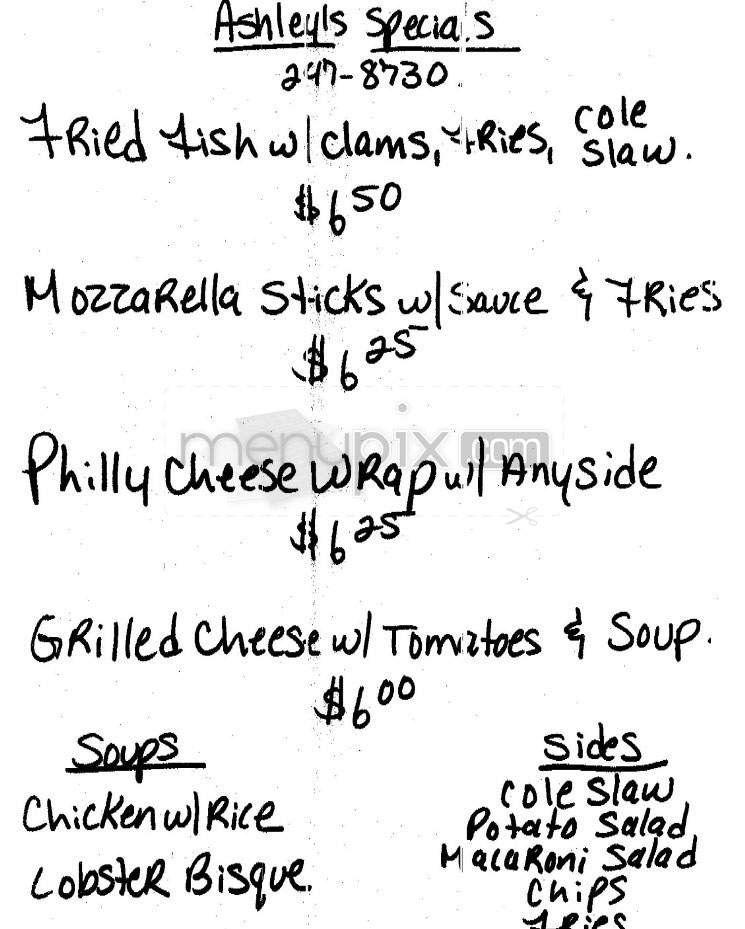 Ashley's Specials
247-8730
Fried Fish w/ clams, Fries, cole slaw.
$6 50
Mozzarella Sticks w/ Sauce & Fries
$6 25
menupix.com
Philly Cheese Wrap w/ Anyside
$6 25
Grilled Cheese w/ Tomatoes & Soup.
$6 00
Soups
Chicken w/ Rice
Lobster Bisque.
Sides
Cole Slaw
Potato Salad
Macaroni Salad
Chips
Fries